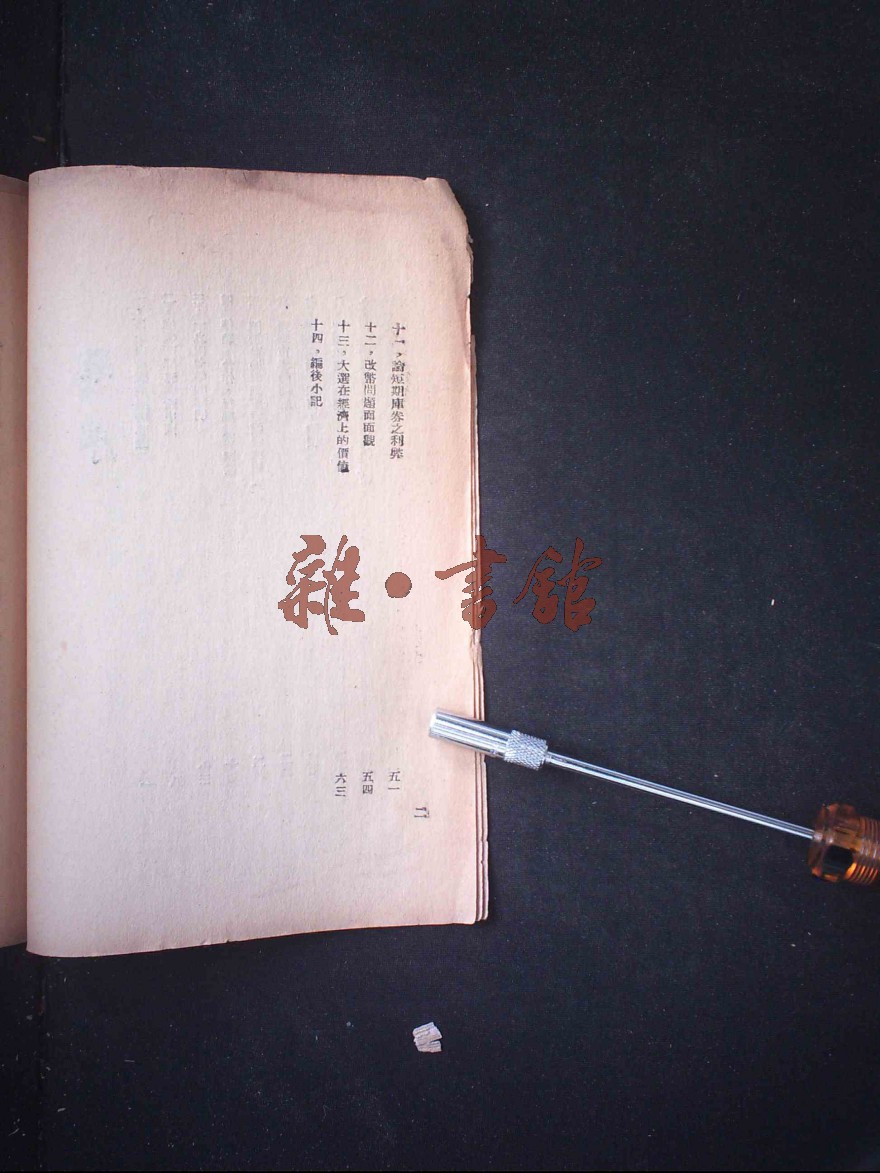 十一，論短期庫券之利弊　五一
十二，改幣問題面面觀　五四
十三，大選在經濟上的價值　六三
十四，編後小記
二
雜·書館